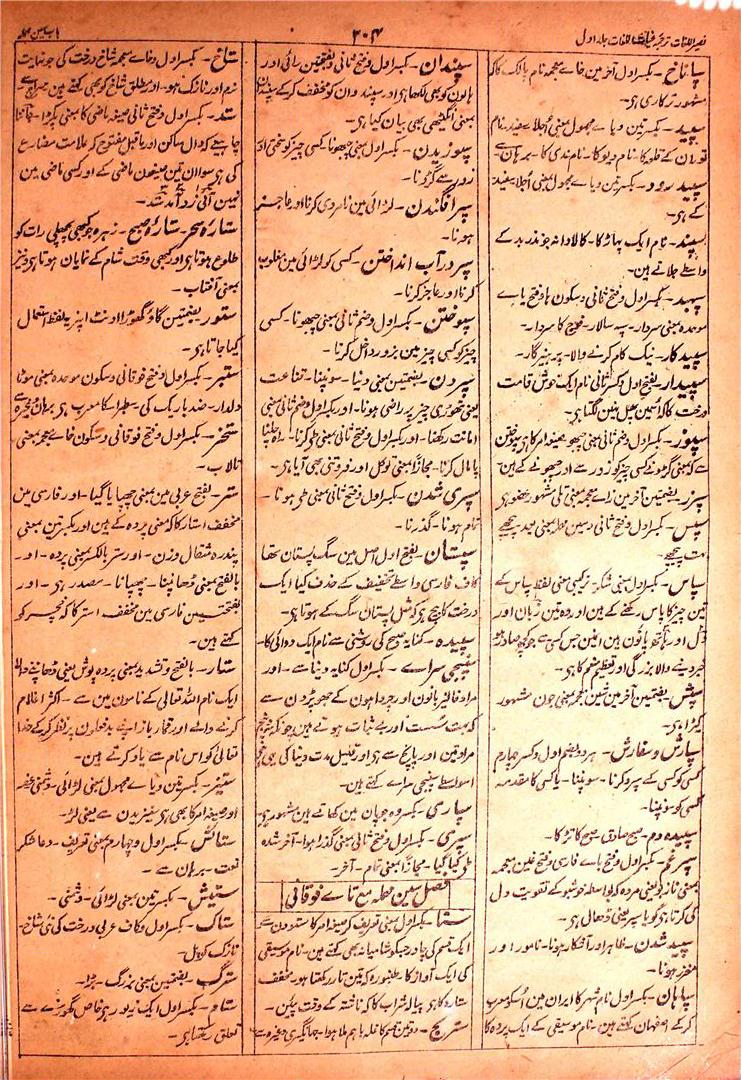 نصیر اللغات ترجمہ غیاث اللغات جلد اول
۲۰۴
باب سین مہملہ
پاناخ - بکسر اول آخر مین خاے معجمہ نام پالک کا کہ
مشہور ترکاری ہی۔
سپید - بکسرتین و یاے مجہول بمعنی اُجلا سفید۔ نام
توران کے قلعہ کا۔ نام دیو کا۔ نام ندی کا۔ برہان سے
سپید رود - بکسرتین و یاے مجہول بمعنی اُجلا سفید
کے ہی۔
سپند - نام ایک پہاڑ کا۔ کالا دانہ جو نذر بد کے
واسطے جلاتے ہین۔
سپہبد - بکسر اول و فتح ثانی و سکون ہا و فتح باے
موحدہ بمعنی سردار۔ سپہ سالار۔ فوج کا سردار۔
سپید کار - نیک کام کرنے والا۔ پرہیزگار۔
سپیدار - بفتح اول و کسر ثانی نام ایک خوش قامت
درخت کا کہ
سپوز - بکسر اول و ضم ثانی بمعنی چبھو
سپرز - بضمتین آخر مین زاے معجمہ بمعنی تلی مشہور عضو ہی
سپس - بکسر اول و فتح ثانی و سین مہملہ بمعنی پیچھے
سپاس - بکسر اول بمعنی شکر
تین چیز کا پاس رکھنے کے ہین اور وہ تین زبان اور
دل اور ہاتھ پانون ہین
سپش - بضمتین آخر مین شین معجمہ بمعنی جون مشہور
کیڑا ہی۔
سپارش و سفارش - ہر دو بضم اول و کسر چہارم
کسی کو کسی کے سپرد کرنا۔ سونپنا۔ یا کسی کا مقدمہ
کسی کو سونپنا۔
سپیدہ دم - صبح صادق۔ صبح کا تڑکا۔
سپرغم - بکسر اول و فتح باے فارسی و فتح غین معجمہ
بمعنی نازبو یعنی مردہ کہ بواسطہ خوشبو کے تقویت دل
کی کرتا ہی گویا سپر یعنی ڈھال ہی۔
سپید شدن - ظاہر اور آشکار ہونا۔ نامور اور
معزز ہونا۔
سپاہان - بکسر اول نام شہر کا ایران مین اُسکو معرب
کر کے اصفہان کہتے ہین۔ نام موسیقی کے ایک پردہ کا
سپندان - بکسر اول و فتح ثانی و بفتحتین رائی اور
ہالون کو بھی لکھا ہی اور سپند وان کو مخفف کر کے سپندان
بمعنی انگیٹھی بھی بیان کیا ہی۔
سپوزیدن - بکسر اول بمعنی چبھونا کسی چیز کو سختی اور
زور سے گڑونا۔
سپر افگندن - لڑائی مین نامردی کرنا اور عاجز
ہونا۔
سپر در آب انداختن - کسی کو لڑائی مین مغلوب
کرنا اور عاجز کرنا۔
سپوختن - بکسر اول و ضم ثانی بمعنی چبھونا۔ کسی
چیز کو کسی چیز مین بزور داخل کرنا۔
سپردن - بضمتین بمعنی دینا۔ سونپنا۔ قناعت
یعنی تھوڑی چیز پر راضی ہونا۔ اور بکسر اول و ضم ثانی بمعنی
امانت رکھنا۔ اور بکسر اول و فتح ثانی بمعنی طی کرنا۔ راہ چلنا
پامال کرنا۔ مجازاً بمعنی توکل اور فروتنی بھی آیا ہی۔
سپری شدن - بکسر اول و فتح ثانی بمعنی طی ہونا۔
تمام ہونا۔ گذرنا۔
سپستان - بفتح اول اصل مین سگ پستان تھا
کاف فارسی واسطے تخفیف کے حذف کیا ایک
درخت کا بیج ہی کہ مثل پستان سگ کے ہوتا ہی۔
سپیدہ - کنایہ صبح کی روشنی سے نام ایک دوائی کا۔
سپنجی سراے - بکسر اول کنایہ دنیا سے۔ اور
مراد فالیز بانون اور چرواہون کے جھوپڑون سے
کہ بہت سُست اور بے ثبات ہوتے ہین
مراد تین اور پانچ سے ہی اور قلیل مدت دنیا کی ہی
اسواسطے سپنجی سراے کہتے ہین۔
سپاری - بکسر وہ جو پان مین کھاتے ہین مشہور ہی
سپری - بکسر اول و فتح ثانی بمعنی گذرا ہوا۔ آخر شدہ
طی کیا گیا۔ مجازاً بمعنی تمام۔ آخر۔
فصل سین مہملہ مع تاے فوقانی
ستا - بکسر اول بمعنی تعریف کر صیغہ امر کا ستودن سے
ایک قسم کی چادر جسکو شامیانہ بھی کہتے ہین۔ نام موسیقی
کی ایک آواز کا۔ طنبورہ کہ تین تار رکھتا ہو مخفف
ستارہ کا ہی
ستاخ - بکسر اول و خاے معجمہ شاخ درخت کی جو نہایت
نرم اور نازک ہو۔ اور مطلق شاخ کو بھی کہتے ہین
ستد - بکسر اول و فتح ثانی صیغہ ماضی کا بمعنی پکڑا۔ جاننا
چاہیے کہ دال ساکن اور ماقبل مفتوح کہ علامت مضارع
کی ہی سوا ان تین صیغون ماضی کے اور کسی ماضی مین
نہین آئی زد آمد ستد۔
ستارۂ سحر ستارۂ صبح - زہرہ جو کبھی پچھلی رات کو
طلوع ہوتا ہی اور کبھی وقت شام کے نمایان ہوتا ہی و نیز
بمعنی آفتاب۔
ستور - بضمتین گاؤ گھوڑا اونٹ اِنپر یہ لفظ استعمال
کیا جاتا ہی۔
ستبر - بکسر اول و فتح فوقانی و سکون موحدہ بمعنی موٹا
دلدار۔ ضد باریک کی سطبر اسکا معرب ہی برہان وغیرہ سے
ستخر - بکسر اول و فتح فوقانی و سکون خاے معجمہ بمعنی
تالاب۔
ستر - بفتح عربی مین بمعنی چھپایا گیا۔ اور فارسی مین
مخفف استار کا کہ بمعنی پردہ کے ہین اور بکسرتین بمعنی
پندرہ مثقال وزن۔ اور ستر بالکسر بمعنی پردہ۔ اور۔
بالفتح بمعنی ڈھانپنا۔ چھپانا۔ مصدر ہی۔ اور
بفتحتین فارسی مین مخفف استر کا کہ خچر کو
کہتے ہین۔
ستار - بالفتح و تشدید بمعنی پردہ پوش یعنی ڈھانپنے والا
ایک نام اللہ تعالیٰ کے نامون مین سے۔ اکثر اغلام
کرنے والے اور قمار باز اپنے بد فعلون پر نظر کر کے خدا
تعالیٰ کو اس نام سے یاد کرتے ہین۔
ستیز - بکسرتین و یاے مجہول بمعنی لڑائی۔ دشمنی
اور صیغہ امر کا بھی ہی ستیزیدن سے یعنی لڑ۔
ستائش - بکسر اول و چہارم بمعنی تعریف۔ دعا شکر
نعت۔ برہان سے۔
ستیش - بکسرتین بمعنی لڑائی۔ دشمنی۔
ستاک - بکسر اول و کاف عربی درخت کی نئی شاخ۔
نازک کونپل۔
سترگ - بضمتین بمعنی بزرگ۔ بڑا۔
ستام - بکسر اول ایک زیور ہی خاص گھوڑے سے
تعلق رکھتا ہی۔